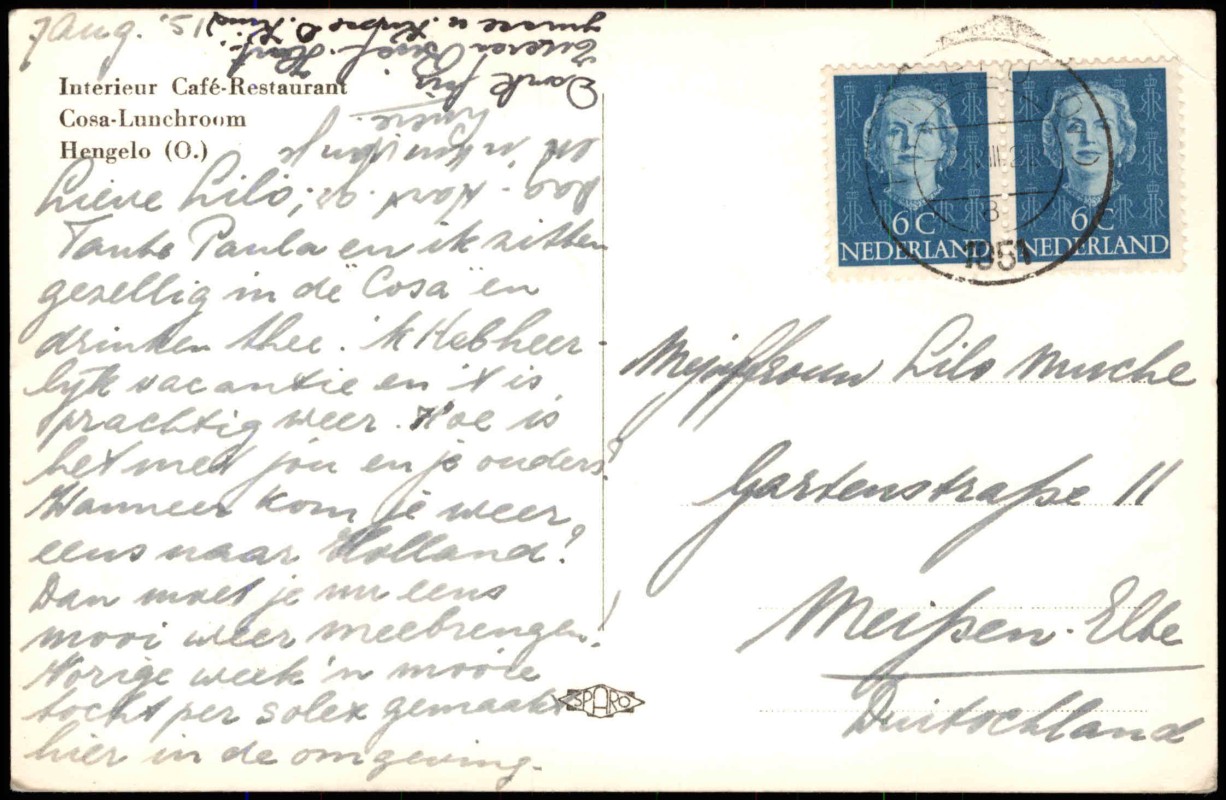 7 Aug. '51
Interieur Café-Restaurant
Cosa-Lunchroom
Hengelo (O.)
Lieve Lilo,
Tante Paula en ik zitten
gezellig in de "Cosa" en
drinken thee. 'k Heb heer
lijk vacantie en 't is
prachtig weer. Hoe is
het met jou en je ouders?
Wanneer kom je weer
eens naar Holland?
Dan moet je nu eens
mooi weer meebrengen!
Vorige week 'n mooie
tocht per solex gemaakt
hier in de omgeving.
Dag. Hart. gr.
Dank für
Eueren Brief. Herzl.
6C
NEDERLAND
6C
NEDERLAND
1951
Mejuffrouw Lilo Musche
Gartenstraße 11
Meißen-Elbe
Duitschland
SPARO